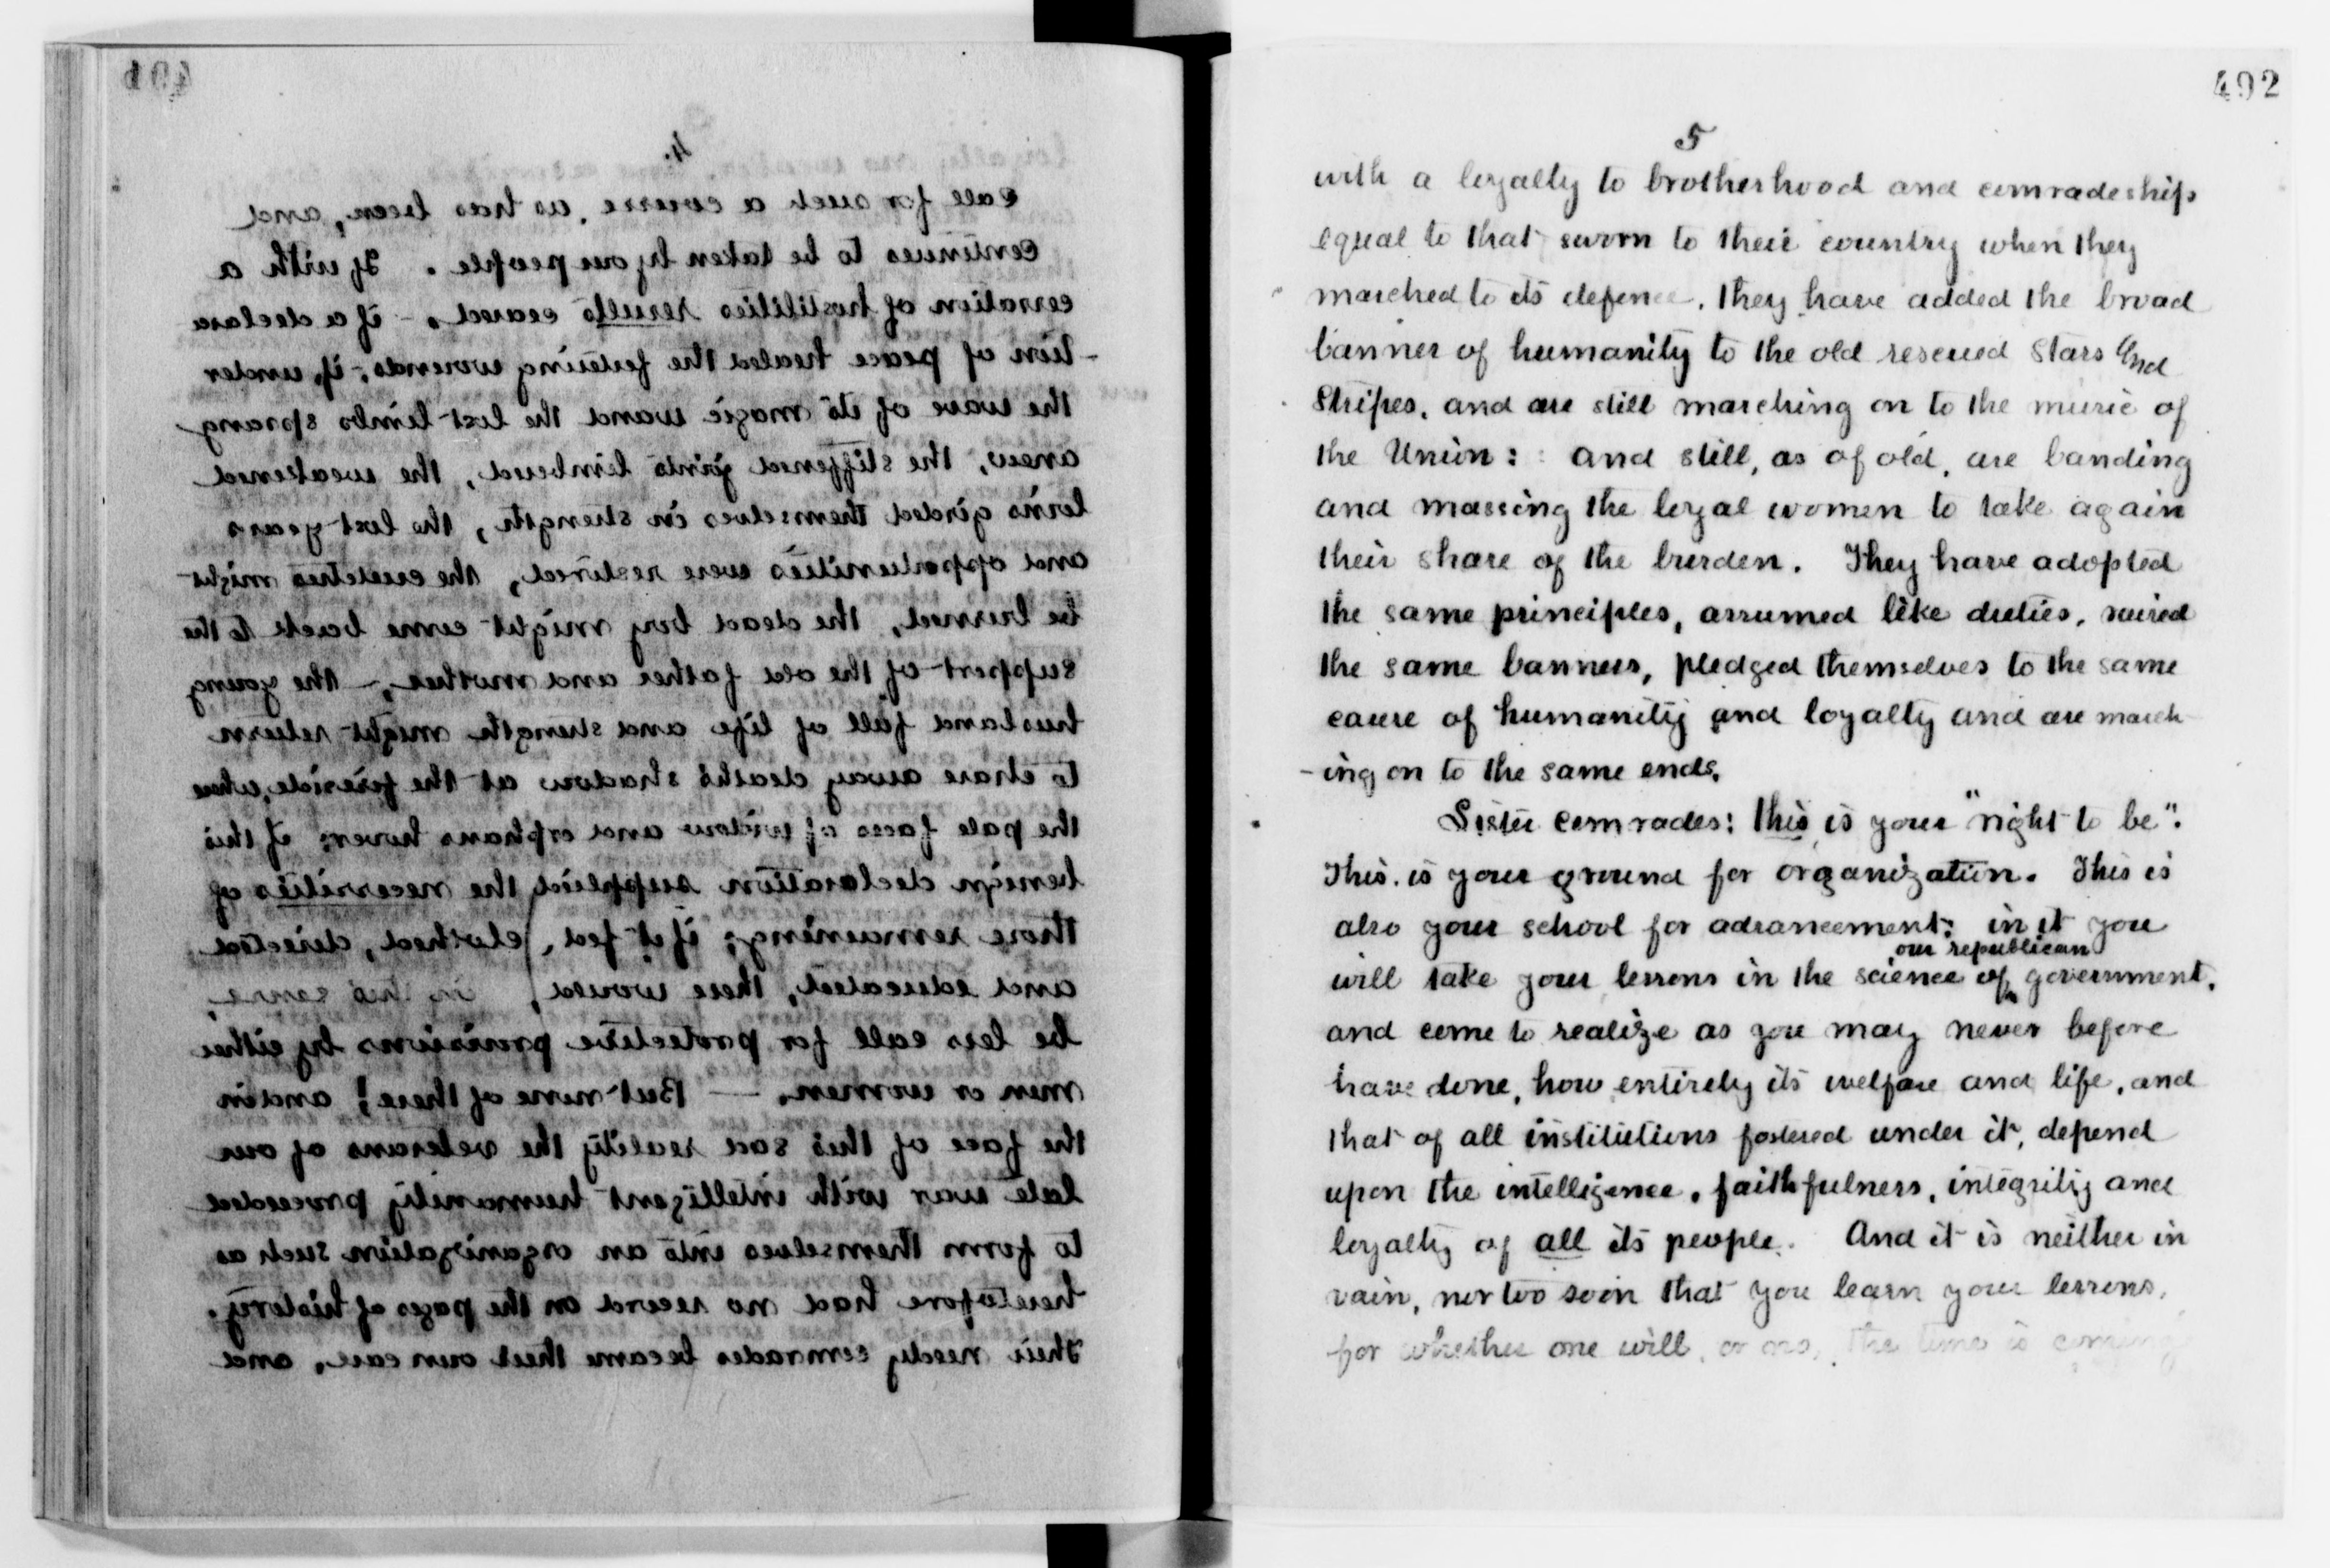 491
4.
call for such a course, as has been, and
continues to be taken by our people. If with a
cessation of hostilities results ceased, - if a declara
-tion of peace healed the festering wounds, if, under
the wave of its magic wand the lost limbs sprang
anew, the stiffened joints limbered, the weakened
loins girded themselves in strength, the lost years
and opportunities were restored, the crutches might
be burned, the dead boy might come back to the
support of the old father and mother, - the young
husband full of life and strength might return
to chase away death's shadow at the fireside, where
the pale faces of widow and orphans hover; if this
benign declaration supplied the necessities of
those remaining; if it fed, clothed, directed
and educated, there would, in this sense,
be less call for protective provisions by either
men or women. — But none of these! and in
the face of this sad reality the veterans of our
late war with intelligent humanity proceeded
to form themselves into an organization such as
heretofore had no record on the pages of history.
Their needy comrades became their own care, and
492
5
with a loyalty to brotherhood and comradeship
equal to that sworn to their country when they
marched to its defence, they have added the broad
banner of humanity to the old rescued Stars and
Stripes, and are still marching on to the music of
the Union: and still, as of old, are banding
and massing the loyal women to take again
their share of the burden. They have adopted
the same principles, assumed like duties, raised
the same banners, pledged themselves to the same
cause of humanity and loyalty and are march
-ing on to the same ends.
Sister comrades: this is your "right to be".
This is your ground for organization. This is
also your school for advancement; in it you
our republican
will take your lessons in the science of government,
and come to realize as you may never before
have done, how entirely its welfare and life, and
that of all institutions fostered under it, depend
upon the intelligence, faithfulness, integrity and
loyalty of all its people. And it is neither in
vain, nor too soon that you learn your lessons,
for whether one will, or no, the time is coming